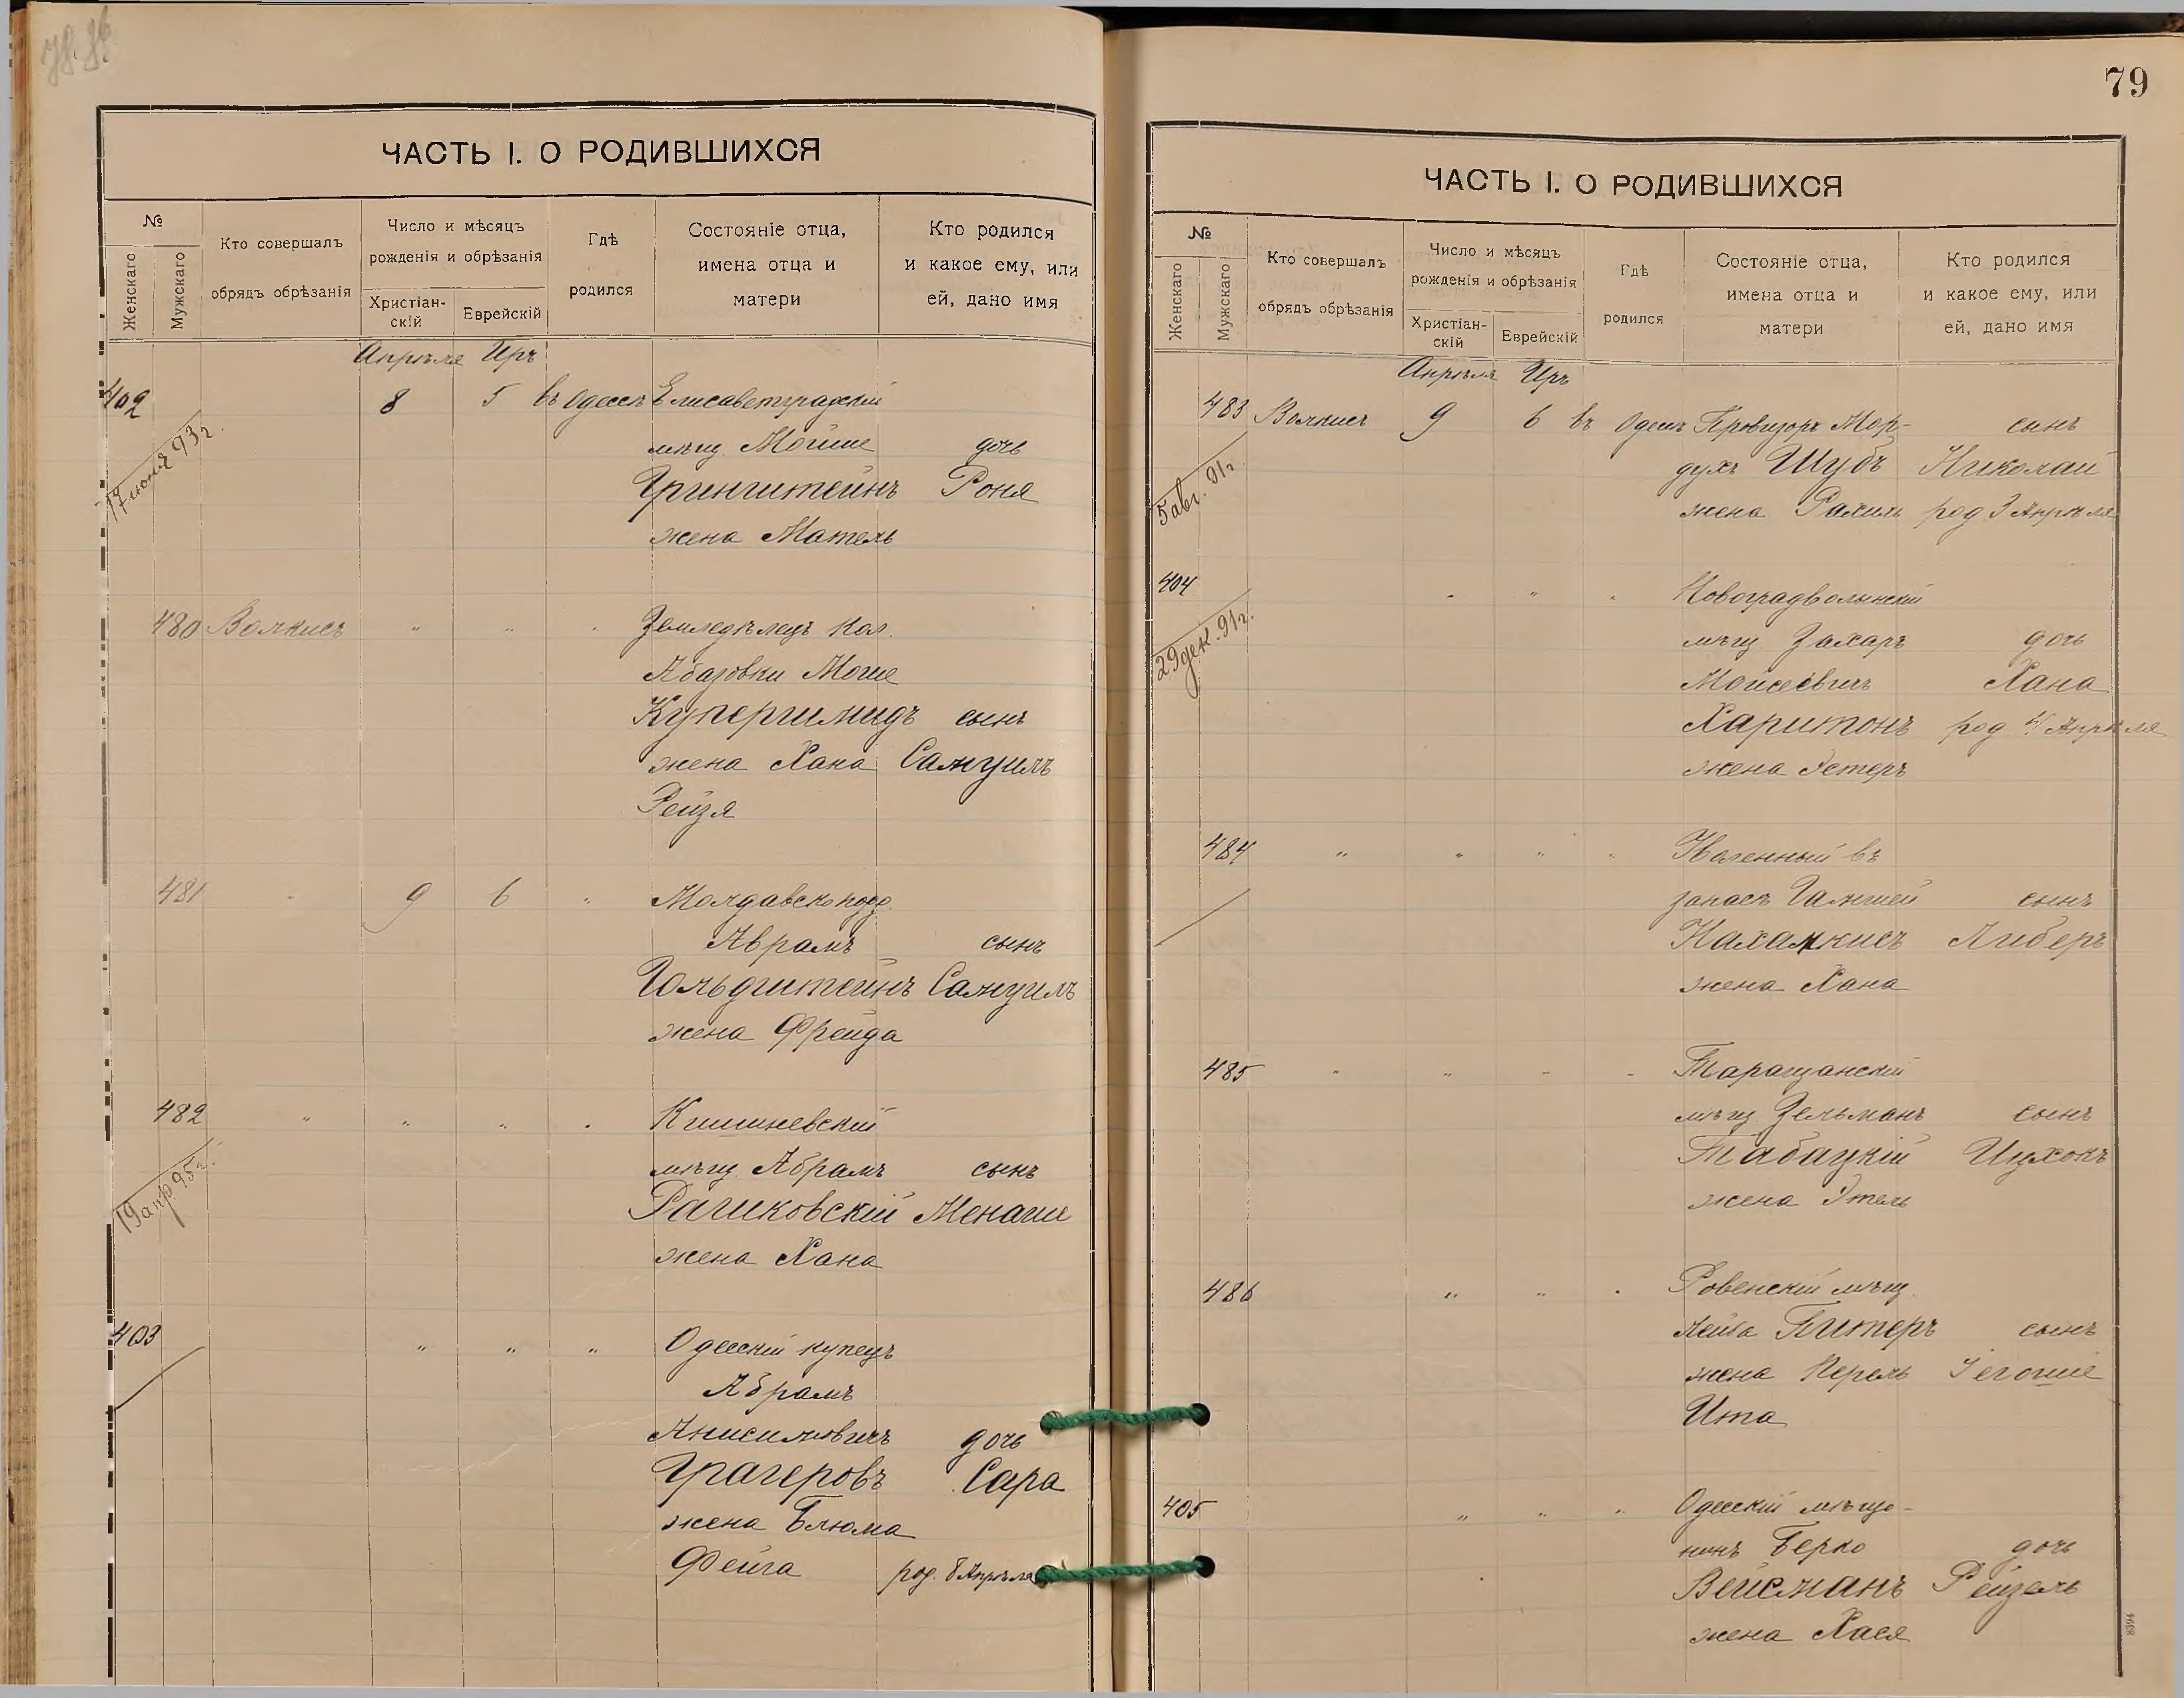 ЧАСТЬ I. О РОДИВШИХСЯ
№
Женскаго
Мужскаго
Кто совершалъ
обрядъ обрѣзанія
Число и мѣсяцъ
рожденія и обрѣзанія
Христіан-
скій
Еврейскій
Гдѣ
родился
Состояніе отца,
имена отца и
матери
Кто родился
и какое ему, или
ей, дано имя
Апрѣля Иръ
402 8 5 въ Одессѣ Елисаветградскій
17 июня 93 г.
мѣщ. Мойше дочь
Гринштейнъ Роня
жена Матель
480 Волкисъ " " " Земледѣлецъ кол.
Абазовки Моше
Купершмидъ сынъ
жена Хана Самуилъ
Рейзя
481 " 9 6 " Молдавскоподд.
Аврамъ сынъ
Гольдштейнъ Самуилъ
жена Фрейда
482 " " " " Кишиневскій
19 апр. 95 г.
мѣщ. Абрамъ сынъ
Рашковскій Менаше
жена Хана
403 " " " Одесскій купецъ
Абрамъ
Анисимовичъ дочь
Грагеровъ Сара
жена Блюма
Фейга род. 8 Апрѣля
79
ЧАСТЬ I. О РОДИВШИХСЯ
№
Женскаго
Мужскаго
Кто совершалъ
обрядъ обрѣзанія
Число и мѣсяцъ
рожденія и обрѣзанія
Христіан-
скій
Еврейскій
Гдѣ
родился
Состояніе отца,
имена отца и
матери
Кто родился
и какое ему, или
ей, дано имя
Апрѣля Иръ
483 Волкисъ 9 6 въ Одессѣ Провизоръ Мор- сынъ
5 авг. 91 г.
духъ Шубъ Николай
жена Рахиль род 3 Апрѣля
404 " " " Новоградволынскій
29 дек. 91 г.
мѣщ Захаръ дочь
Моисеевичъ Хана
Харитонъ род 4 Апрѣля
жена Эстеръ
484 " " " " въ
запасъ сынъ
Нахамкисъ Либеръ
жена Хана
485 " " " " Таращанскій
мѣщ Зельманъ сынъ
Табацкій Ицхокъ
жена Этель
486 " " " Ровенскій мѣщ.
Лейба Питеръ сынъ
жена Перель Іегошіе
Ита
405 " " " Одесскій мѣща-
нинъ Берко дочь
Вейсманъ Рейзель
жена Хася